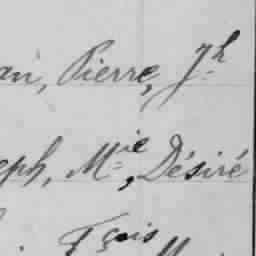 an, Pierre, Jh
eph, Mie, Désiré
Fçois